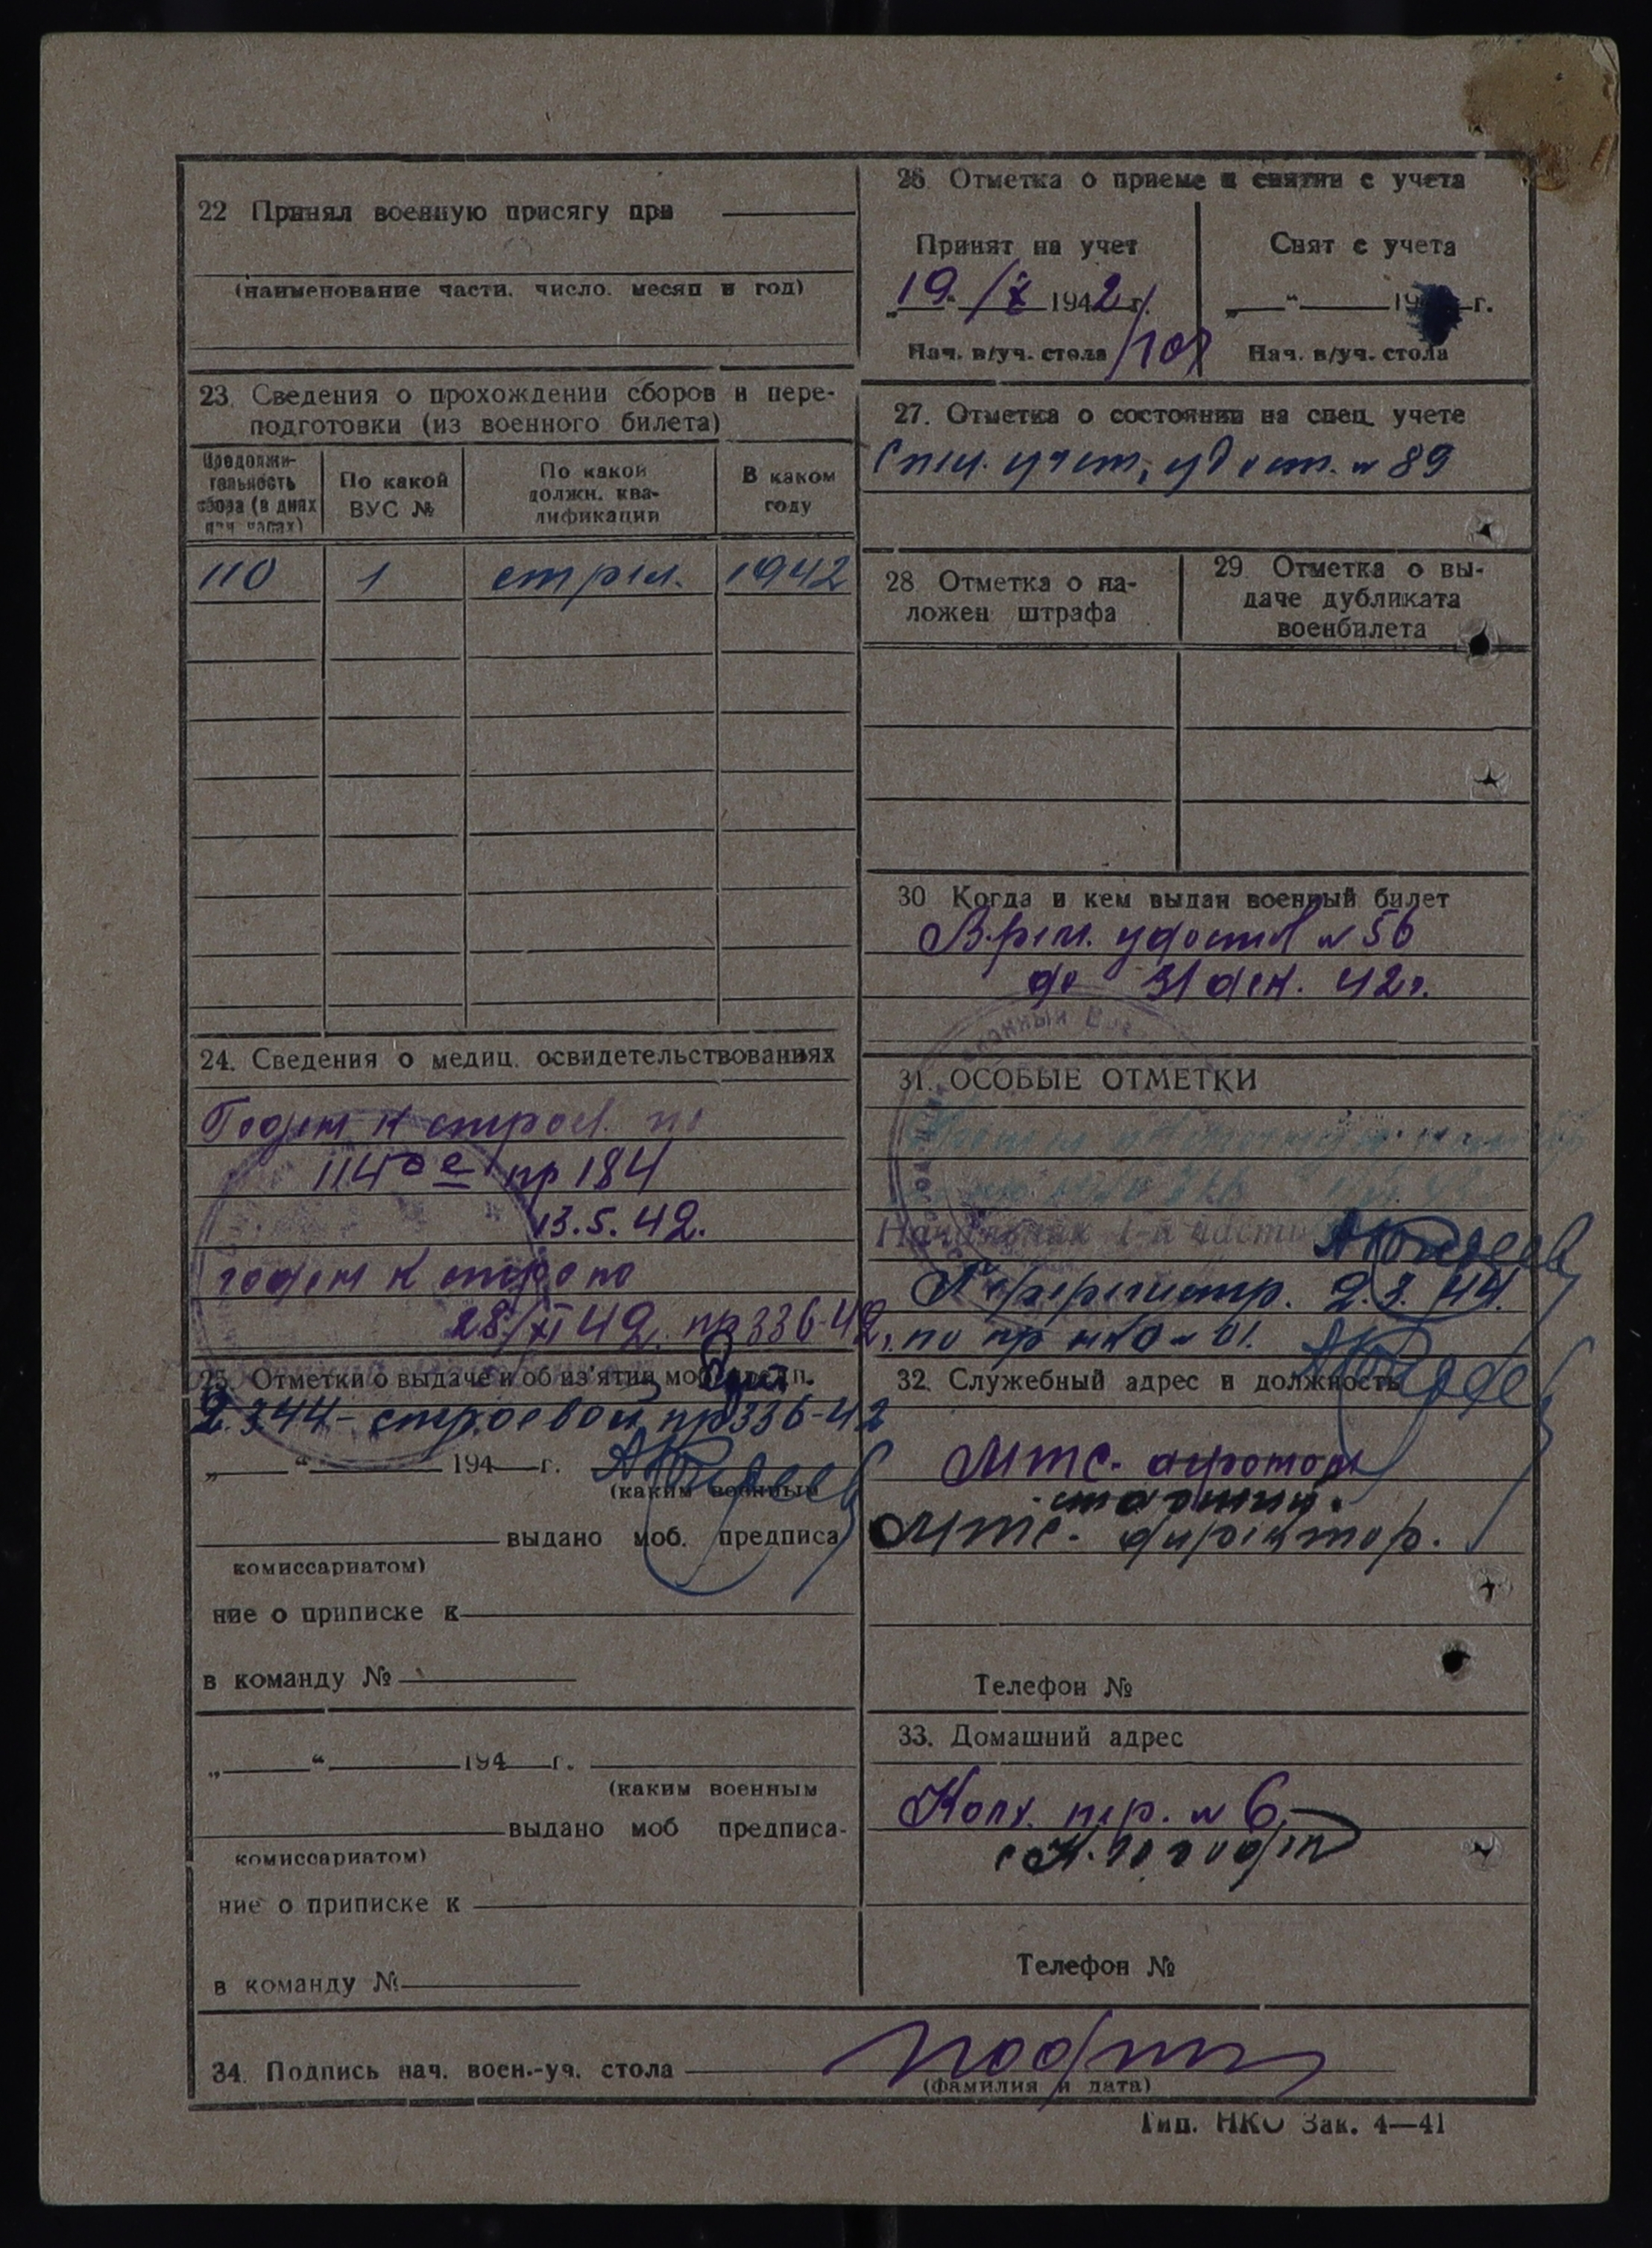 22 Принял военную присягу при
(наименование части, число, месяц и год)
23. Сведения о прохождении сборов и пере-
подготовки (из военного билета)
Продолжи-
тельность
сбора (в днях
или часах)
По какой
ВУС №
По какой
должн. ква-
лификации
В каком
году
110 1 стрел. 1942
24. Сведения о медиц. освидетельствованиях
Годен к строев. по
114 пр 184
13.5.42.
годен к строю по
28/XI 42. пр 336-42г.
25. Отметки о выдаче и об из'ятии моб.
2.3.44 - строевой пр 336-42
„ “ 194 г.
(каким военным
выдано моб. предписа
комиссариатом)
ние о приписке к
в команду №
„ “ 194 г.
(каким военным
выдано моб предписа-
комиссариатом)
ние о приписке к
в команду №
26 Отметка о приеме и снятии с учета
Принят на учет
19 /X 1942 г.
Нач. в/уч. стола
Снят с учета
„ “ 19 г.
Нач. в/уч. стола
27. Отметка о состоянии на спец. учете
Спец. учет, удост. № 89
28 Отметка о на-
ложен штрафа
29. Отметка о вы-
даче дубликата
военбилета
30 Когда и кем выдан военный билет
Врем. удостов № 56
до 31 дек. 42г.
31. ОСОБЫЕ ОТМЕТКИ
Начальник 1-й части
Перерегистр. 2.3.44.
по пр нко № 01.
32. Служебный адрес и должность
МТС.
старший.
МТС. директор.
Телефон №
33. Домашний адрес
Колх. пер. № 6
Телефон №
34. Подпись нач. воен.-уч. стола
(фамилия и дата)
Тип. НКО Зак. 4—41